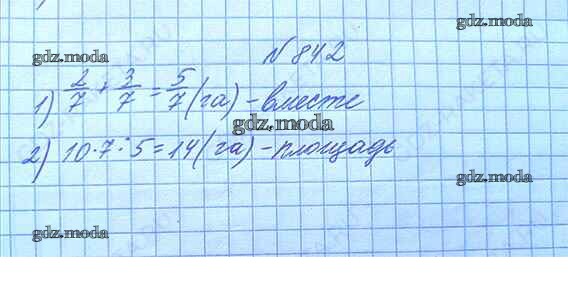 gdz.moda
gdz.moda
N 842
1) 2/7 + 3/7 = 5/7 (га) - вместе
gdz.moda
2) 10·7:5=14 (га) - площадь
gdz.moda
gdz.moda
gdz.moda